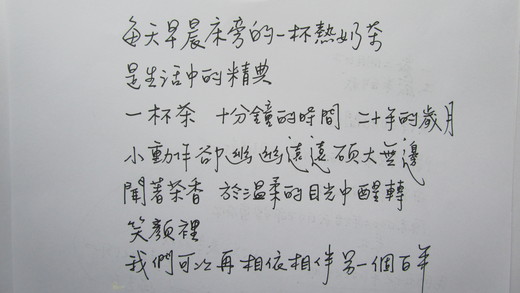 每天早晨床旁的一杯熱奶茶
是生活中的精典
一杯茶 十分鐘的時間 二十年的歲月
小動作卻幽幽遠遠碩大無邊
聞著茶香 於溫柔的目光中醒轉
笑顏裡
我們可以再相依相伴另一個百年